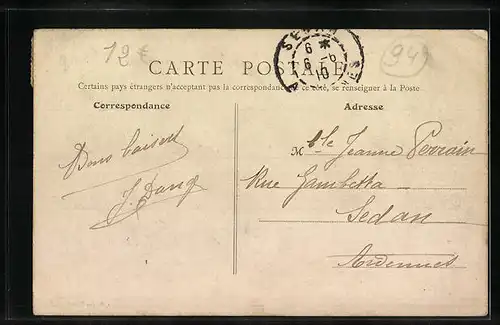 12 €
94
SE
6 *
6 - 6
10
CARTE POSTALE
Certains pays étrangers n'acceptant pas la correspondance de ce côté, se renseigner à la Poste
Correspondance
Adresse
Bons baisers
M lle Jeanne Perrain
Rue Gambetta
Sedan
Ardennes